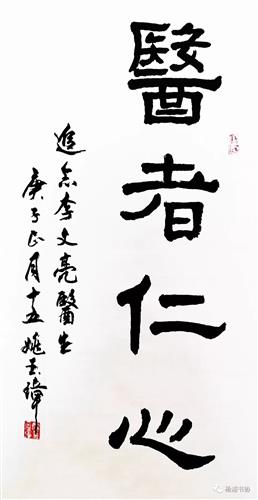 醫者仁心
追念李文亮醫生
庚子正月十五姚玉璋
楊浦书协